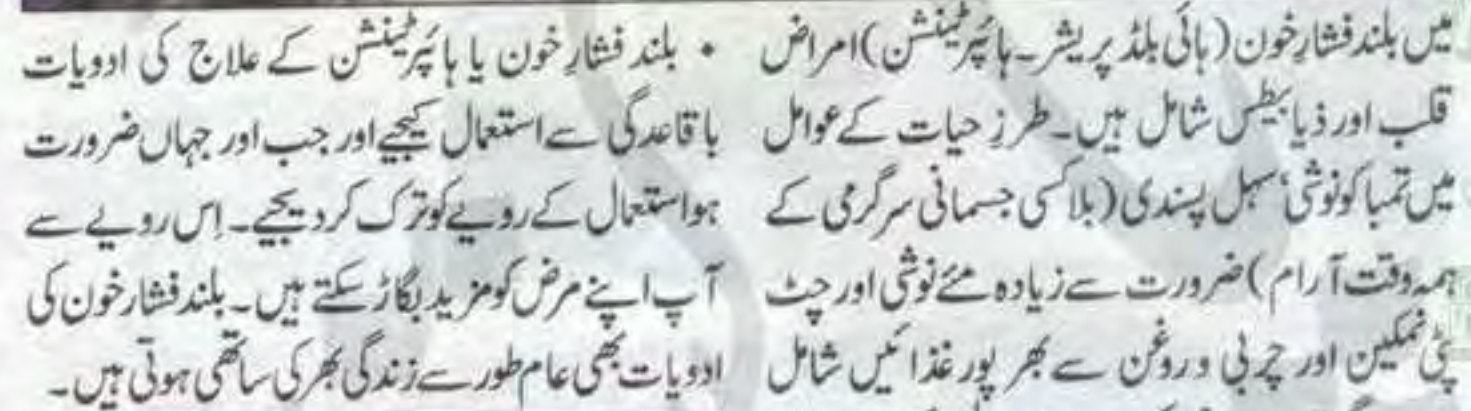 میں بلند فشارِ خون (ہائی بلڈ پریشر۔ ہائپرٹینشن) امراض
قلب اور ذیابیطس شامل ہیں۔ طرزِ حیات کے عوامل
میں تمباکو نوشی، سہل پسندی (بلا کسی جسمانی سرگرمی کے
ہمہ وقت آرام) ضرورت سے زیادہ مئے نوشی اور چٹ
پٹی نمکین اور چربی و روغن سے بھر پور غذائیں شامل
• بلند فشارِ خون یا ہائپرٹینشن کے علاج کی ادویات
باقاعدگی سے استعمال کیجیے اور جب اور جہاں ضرورت
ہو استعمال کے رویے کو ترک کر دیجیے۔ اِس رویے سے
آپ اپنے مرض کو مزید بگاڑ سکتے ہیں۔ بلند فشار خون کی
ادویات بھی عام طور سے زندگی بھر کی ساتھی ہوتی ہیں۔